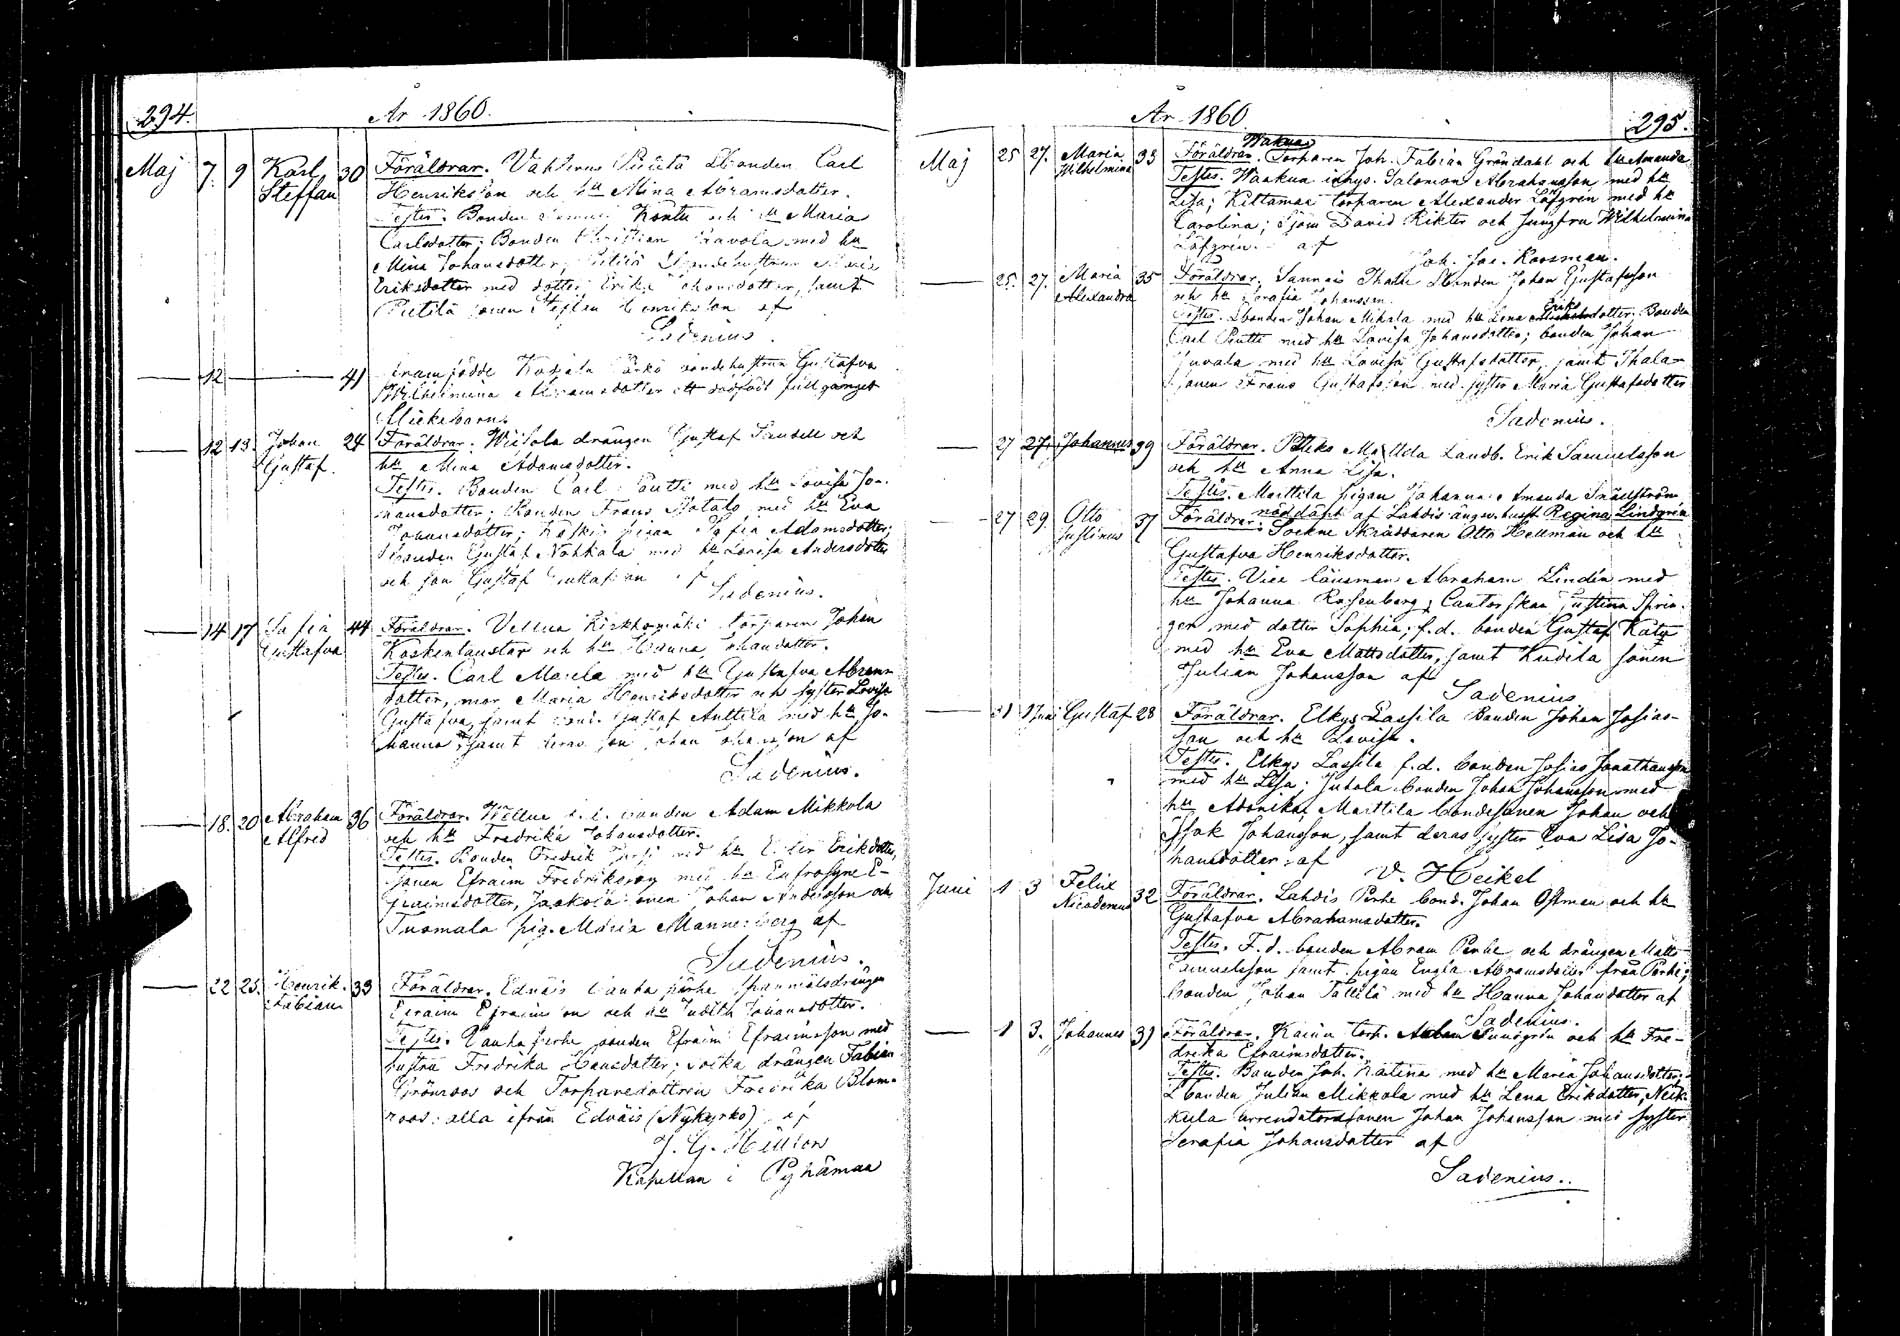 294.
År 1860.
Maj 7. 9 Karl Steffan 30 Föräldrar. Vahterus Pietilä Lbonden Carl
Henriksson och hu Mina Abramsdotter.
Testes. Bonden Kontu och hu Maria
Carlsdotter; Bonden Christian med hu
Mina Johansdotter; Maria
Eriksdotter med dotter Erika Johansdotter, samt
Pietilä sonen Stefan Henriksson af
Sadenius.
12 41 framfödde bondehustrun Gustafva
Wilhelmina Abramsdotter ett dödfödt fullgånget
Flickebarn.
12 13 Johan Gustaf. 24 Föräldrar. drängen Gustaf Sandell och
hu Mina Adamsdotter.
Testes. Bonden Carl Pentti med hu Lovisa Jo-
hansdotter; Bonden Frans med hu Eva
Johansdotter; pigan Sofia Adamsdotter;
Bonden Gustaf Nohkola med hu Lovisa Andersdotter
och son Gustaf Gustafsson af
Sadenius.
14 17 Sofia Gustafva 44 Föräldrar. Vellua Kirkkomäki torparen Johan
Koskenlaustar och hu Hanna Johansdotter.
Testes. Carl Marila med hu Gustafva Abrams-
dotter, mor Maria Henriksdotter och syster Lovisa
Gustafva, samt bond. Gustaf Anttila med hu Jo-
hanna, samt deras son Johan Johansson af
Sadenius.
18. 20 Abraham Alfred 36 Föräldrar. Wellua f.d. bonden Adam Mikkola
och hu Fredrika Johansdotter.
Testes. Bonden Fredrik med hu Ester Eriksdotter,
sonen Efraim Fredriksson med hu Eufrosyne E-
fraimsdotter, Jaakola sonen Johan Andersson och
Tuomala pig. Maria Mannerberg af
Sadenius.
22 25. Henrik Fabian 33 Föräldrar. Edväis Vanhaperhe spanmålsdrängen
Efraim Efraimsson och hu Judith Johansdotter.
Testes. Vanhaperhe bonden Efraim Efraimsson med
hustru Fredrika Hansdotter; drängen Fabian
Grönroos och Torparedottren Fredrika Blom-
roos: alla ifrån Edväis (Nykyrko) af
J. G.
Kapellan i Pyhämaa
År 1860
295.
Wakua
Maj 25 27. Maria Wilhelmina 33 Föräldrar. Torparen Joh. Fabian Gröndahl och hu Amanda
Testes. Waakua inhys. Salomon Abrahamsson med hu
Lisa; Kittamaa torparen Alexander Löfgrén med hu
Carolina; Sjöm. David Rikter och Jungfru Wilhelmina
Löfgrén. af
Joh. Jac. Roosman.
25. 27. Maria Alexandra 35 Föräldrar. Sannais Thalu Lbonden Johan Gustafsson
och hu Serafia Johansson.
Eriks
Testes. Lbonden Johan Mikola med hu Lena dotter; Bonden
Carl Pentti med hu Lovisa Johansdotter; bonden Johan
Juvala med hu Lovisa Gustafsdotter, samt Thala-
sonen Frans Gustafsson med syster Maria Gustafsdotter
Sadenius.
27 27. Johannes 39 Föräldrar. Pitkis Landb. Erik Samuelsson
och hu Anna Lisa.
Testes. Marttila pigan Johanna Amanda Snällström,
nöddöpt af Lahdis ängsv. hust. Regina Lindgrén
27 29 Otto Justinus 37 Föräldrar: Sockne Skräddaren Otto Hellman och hu
Gustafva Henriksdotter.
Testes. Vice länsman Abraham Lindén med
hu Johanna Rosenberg; Cantorskan Justina Sprin-
gert med dotter Sophia; f.d. bonden Gustaf Katu
med hu Eva Mattsdotter, samt Kudila sonen
Julian Johansson af
Sadenius
31 1 Juni Gustaf 28 Föräldrar. Elkys Lassila Bonden Johan Josias-
son och hu Lovisa.
Testes. Elkys Lassila f.d. bonden Josias Jonathansson
med hu Lisa; Juhola bonden Johan Johansson med
hu Adonika; Marttila bondesonen Johan och
Isak Johansson, samt deras syster Eva Lisa Jo-
hansdotter: af
V. Heikel
Juni 1 3 Felix Nicodemus 32 Föräldrar. Lahdis Perhe bond. Johan Ostman och hu
Gustafva Abrahamsdotter.
Testes. F.d. bonden Abram Perhe och drängen Matts
Samuelsson samt pigan Engla Abramsdotter från Perhe;
bonden Johan Tallila med hu Hanna Johansdotter af
Sadenius.
1 3. Johannes 31 Föräldrar. Torp. Adam Sundgrén och hu Fre-
drika Efraimsdotter.
Testes. Bonden Joh. Katina med hu Maria Johansdotter;
Lbonden Julian Mikkola med hu Lena Eriksdotter, Neik-
kula arrendatorssonen Johan Johansson med syster
Serafia Johansdotter af
Sadenius..